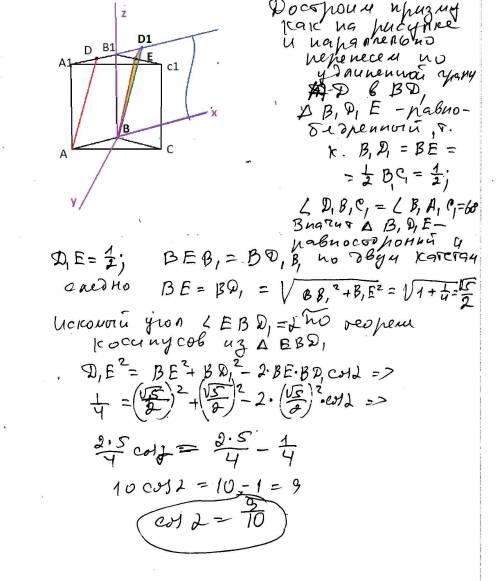 Достроим призму
как на рисунке
и параллельно
перенесем по
удлиненной грани
D в BD,
△ B₁D₁E - равно-
бедренный, т.
к. B₁D₁ = BE =
= 1/2 B₁C₁ = 1/2;
∠ D₁B₁C₁ = ∠ B₁A₁C₁ = 60
Значит △ B₁D₁E -
равносторонний и
z
D B1 D1
E
A1 c1
x
B
A C
y
D₁E = 1/2; BEB₁ = BD₁B₁ по двум катетам
BE = BD₁ = √(BB₁² + B₁E²) = √(1 + 1/4) = √5/2
Искомый угол ∠ EBD₁ = α по теорем
косинусов из △ EBD₁
D₁E² = BE² + BD₁² - 2·BE·BD₁ cosα =>
1/4 = (√5/2)² + (√5/2)² - 2·(√5/2)²·cosα =>
2·5/4 cosα = 2·5/4 - 1/4
10 cosα = 10 - 1 = 9
cosα = 9/10